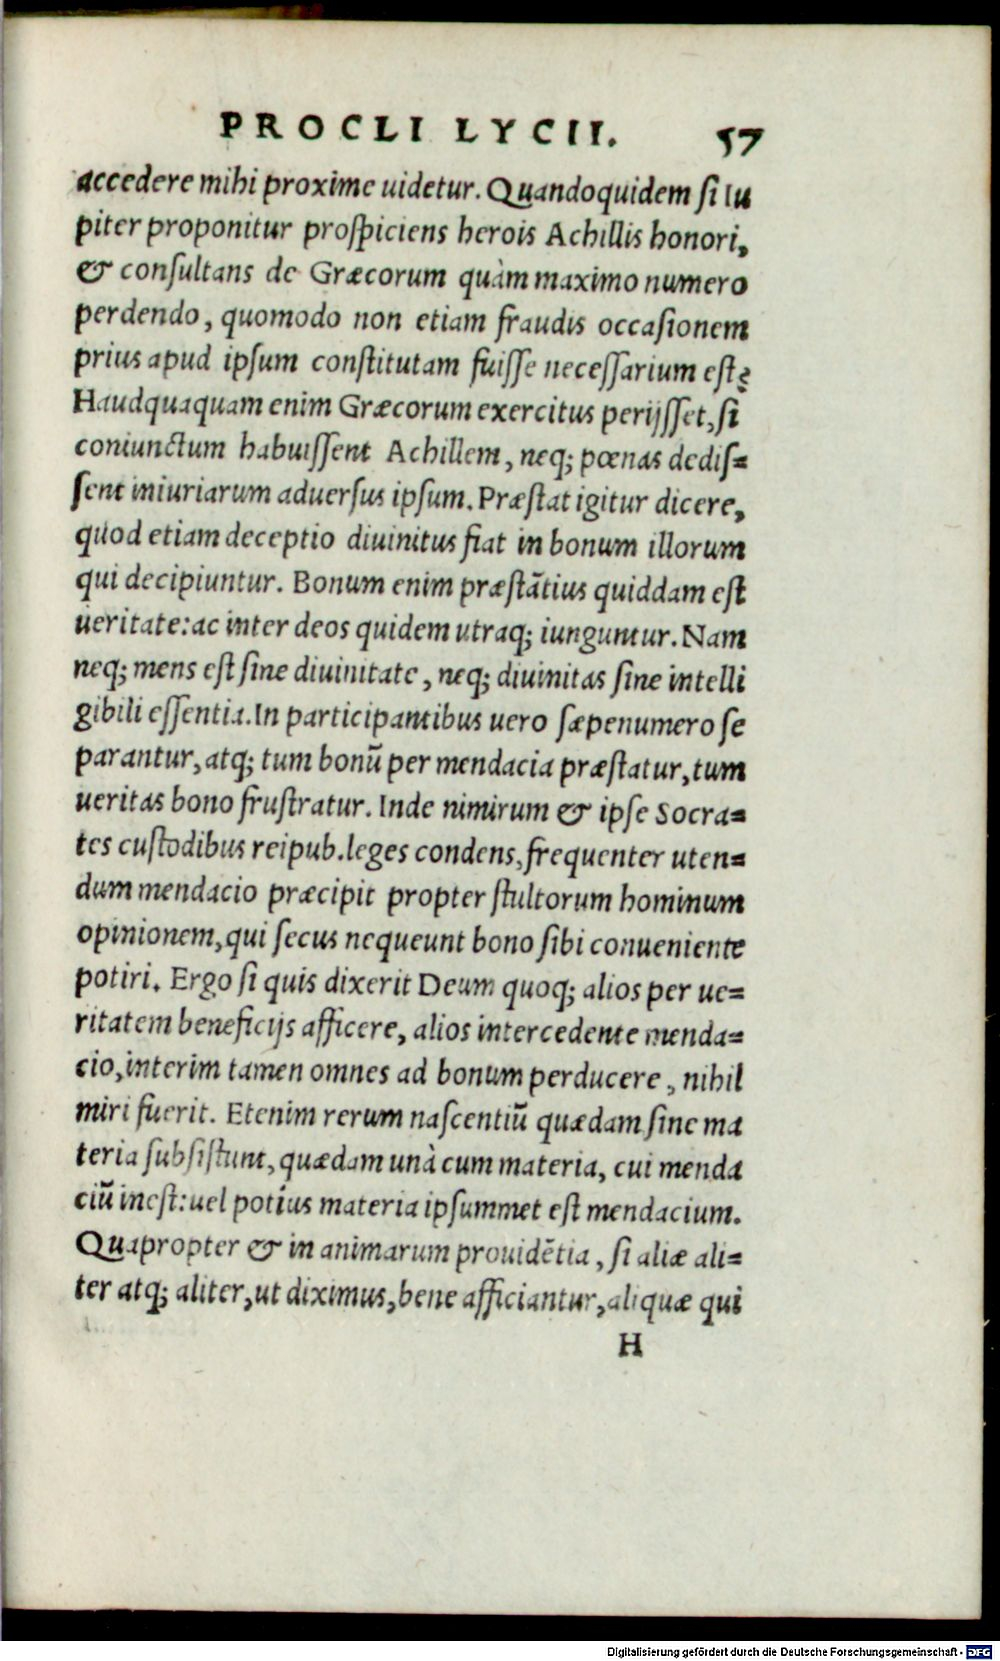 PROCLI LYCII. 57
accedere mihi proxime uidetur. Quandoquidem si Iu
piter proponitur prospiciens herois Achillis honori,
& consultans de Græcorum quàm maximo numero
perdendo, quomodo non etiam fraudis occasionem
prius apud ipsum constitutam fuisse necessarium est?
Haudquaquam enim Græcorum exercitus perijsset, si
coniunctum habuissent Achillem, neq; pœnas dedis=
sent iniuriarum aduersus ipsum. Præstat igitur dicere,
quod etiam deceptio diuinitus fiat in bonum illorum
qui decipiuntur. Bonum enim præstãtius quiddam est
ueritate: ac inter deos quidem utraq; iunguntur. Nam
neq; mens est sine diuinitate, neq; diuinitas sine intelli
gibili essentia. In participantibus uero sæpenumero se
parantur, atq; tum bonũ per mendacia præstatur, tum
ueritas bono frustratur. Inde nimirum & ipse Socra=
tes custodibus reipub. leges condens, frequenter uten=
dum mendacio præcipit propter stultorum hominum
opinionem, qui secus nequeunt bono sibi conueniente
potiri. Ergo si quis dixerit Deum quoq; alios per ue=
ritatem beneficijs afficere, alios intercedente menda=
cio, interim tamen omnes ad bonum perducere, nihil
miri fuerit. Etenim rerum nascentiũ quædam sine ma
teria subsistunt, quædam unà cum materia, cui menda
ciũ inest: uel potius materia ipsummet est mendacium.
Quapropter & in animarum prouidẽtia, si aliæ ali=
ter atq; aliter, ut diximus, bene afficiantur, aliquæ qui
H
Digitalisierung gefördert durch die Deutsche Forschungsgemeinschaft - DFG